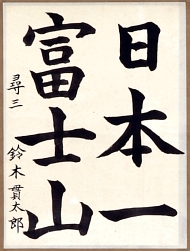 日本一
富士山
尋三
鈴木貫太郎